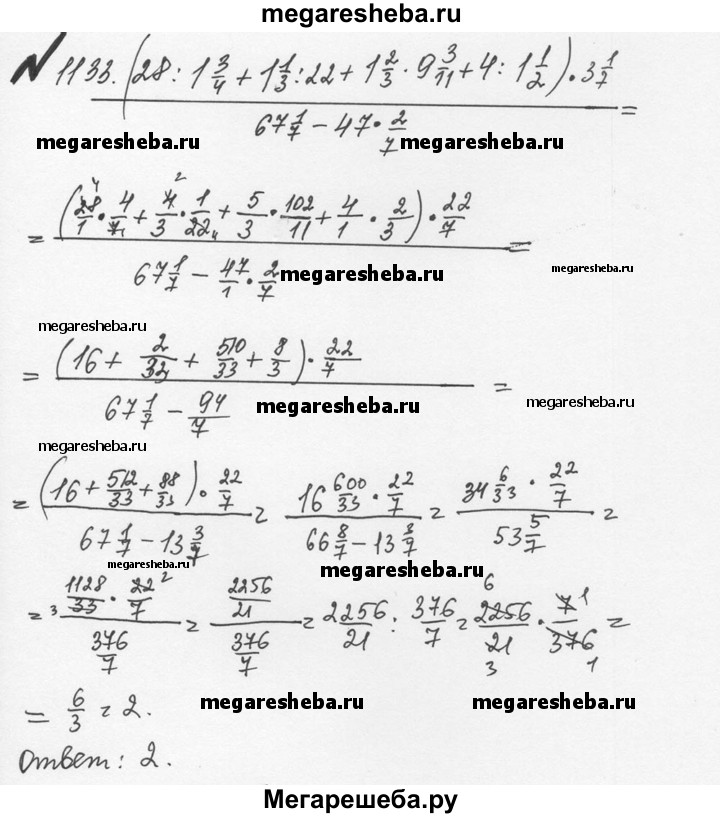 megaresheba.ru
№ 1133. (28 : 1 3/4 + 1 1/3 : 22 + 1 2/3 · 9 3/11 + 4 : 1 1/2) · 3 1/7
67 1/7 − 47 · 2/7 =
megaresheba.ru megaresheba.ru
= (28/1 · 4/7 + 4/3 · 1/22 + 5/3 · 102/11 + 4/1 · 2/3) · 22/7 =
67 1/7 − 47/1 · 2/7 megaresheba.ru megaresheba.ru
megaresheba.ru
= (16 + 2/33 + 510/33 + 8/3) · 22/7 =
67 1/7 − 94/7 megaresheba.ru megaresheba.ru
megaresheba.ru
= (16 + 512/33 + 88/33) · 22/7 = 16 600/33 · 22/7 = 34 6/33 · 22/7 =
67 1/7 − 13 3/7 66 8/7 − 13 3/7 53 5/7
megaresheba.ru megaresheba.ru
= 1128/33 · 22/7 = 2256/21 = 2256/21 : 376/7 = 2256/21 · 7/376 =
376/7 376/7
= 6/3 = 2. megaresheba.ru megaresheba.ru
Ответ: 2.
Мегарешеба.ру